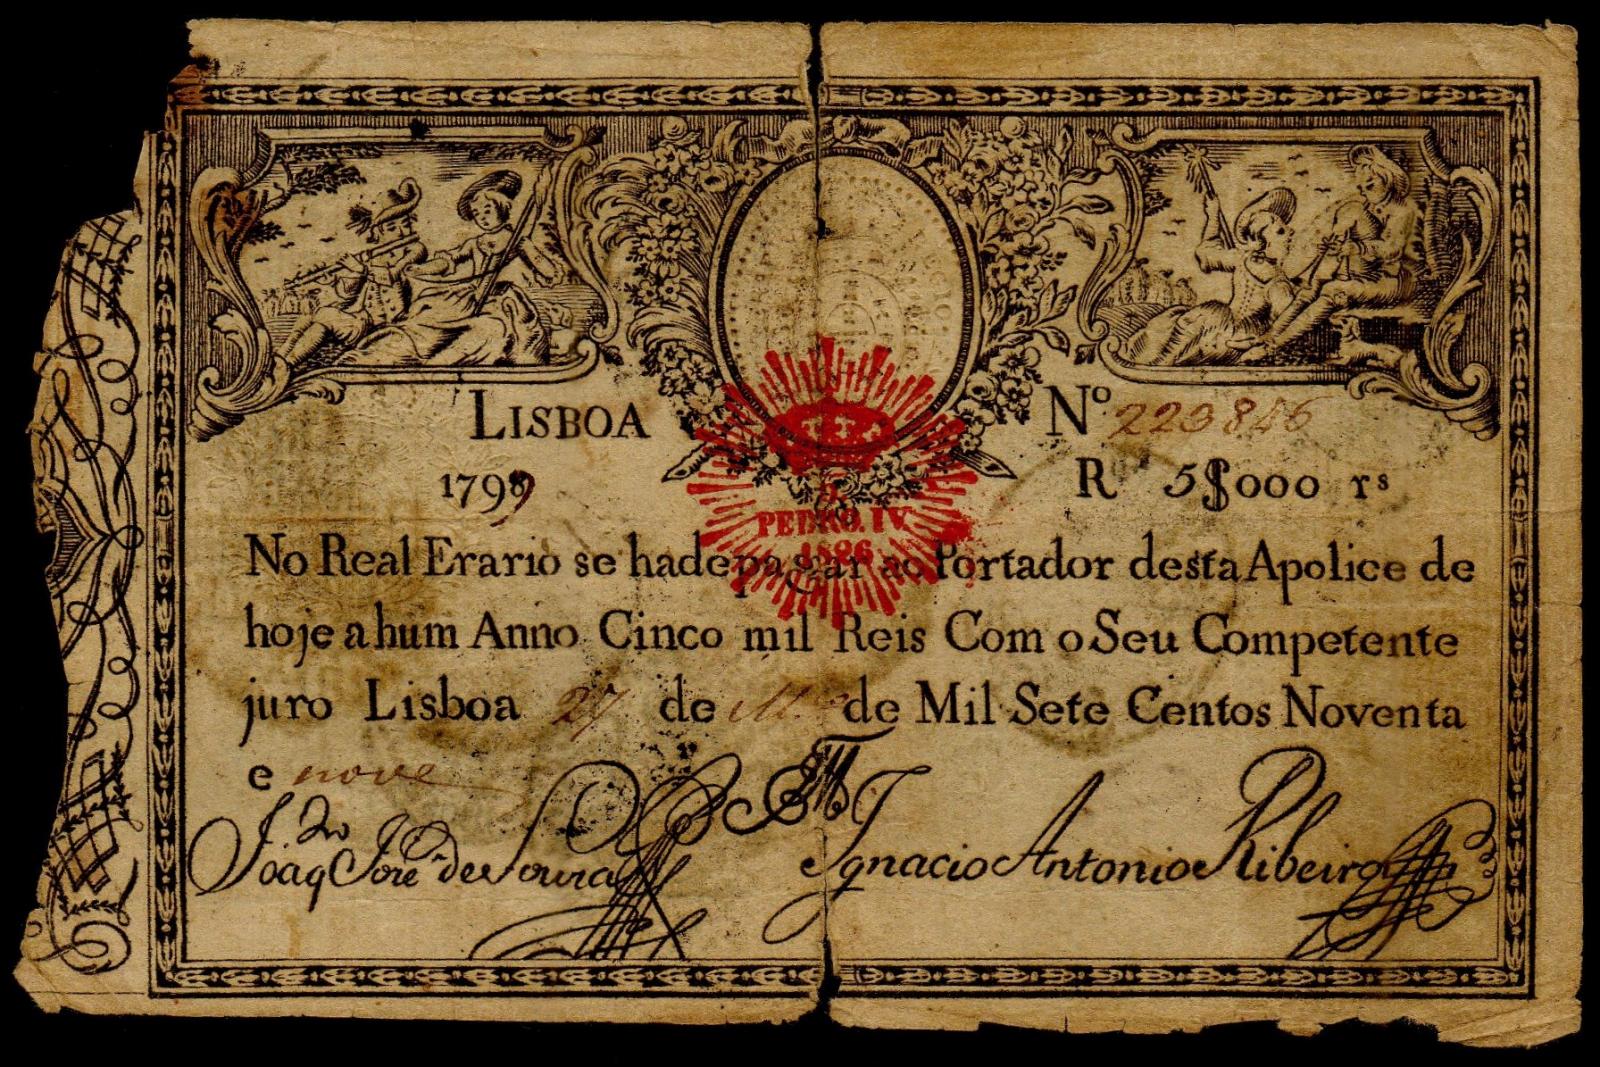 LISBOA
Nº 223846
1799
R 5$000 rs
PEDRO. IV
1826
No Real Erario se hadepagar ao Portador desta Apolice de
hoje ahum Anno Cinco mil Reis Com o Seu Competente
juro Lisboa 27 de de Mil Sete Centos Noventa
e nove
Joaq Jose de Souza
Ignacio Antonio Ribeiro